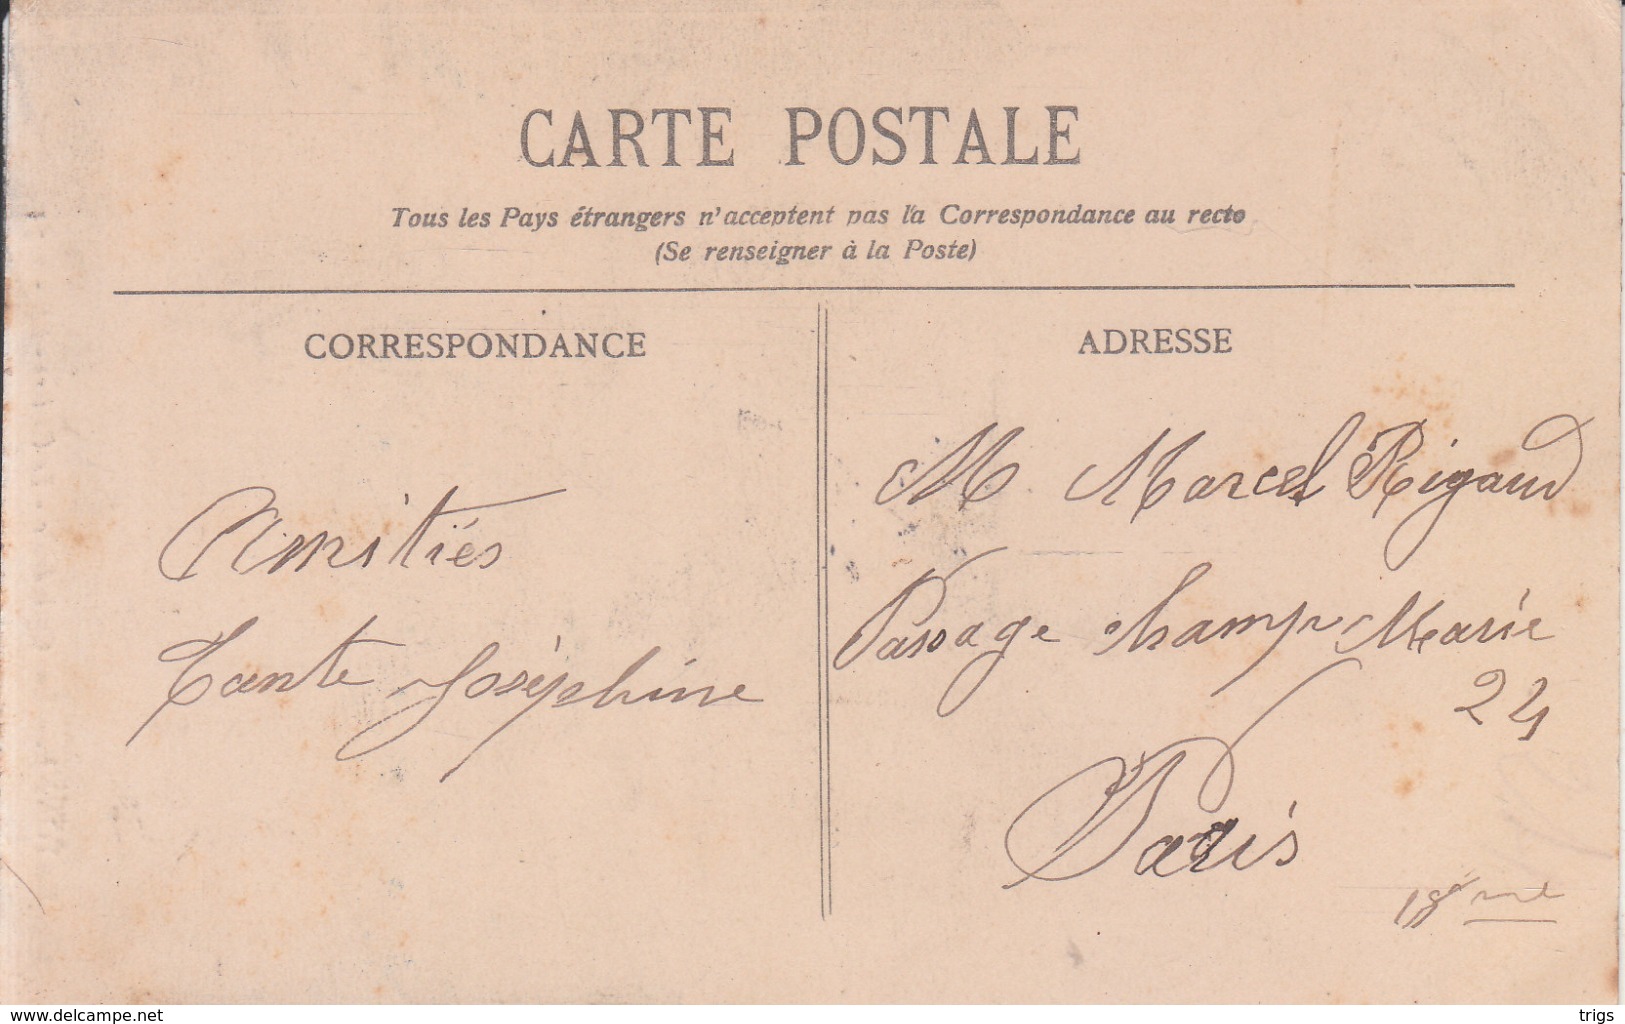 CARTE POSTALE
Tous les Pays étrangers n'acceptent pas la Correspondance au recto
(Se renseigner à la Poste)
CORRESPONDANCE
Amitiés
Tante Joséphine
ADRESSE
M. Marcel Rigaud
Passage Champ Marie
24
Paris
18
www.delcampe.net
trigs